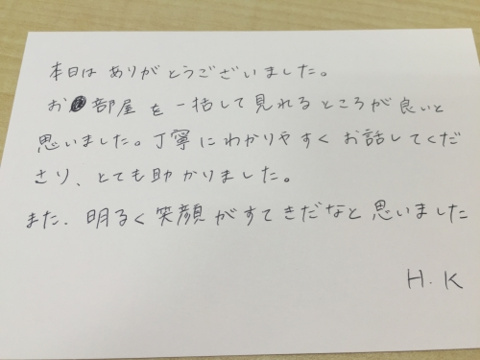 本日はありがとうございました。
お部屋を一括して見れるところが良いと
思いました。丁寧にわかりやすくお話してくだ
さり、とても助かりました。
また、明るく笑顔がすてきだなと思いました
H.K